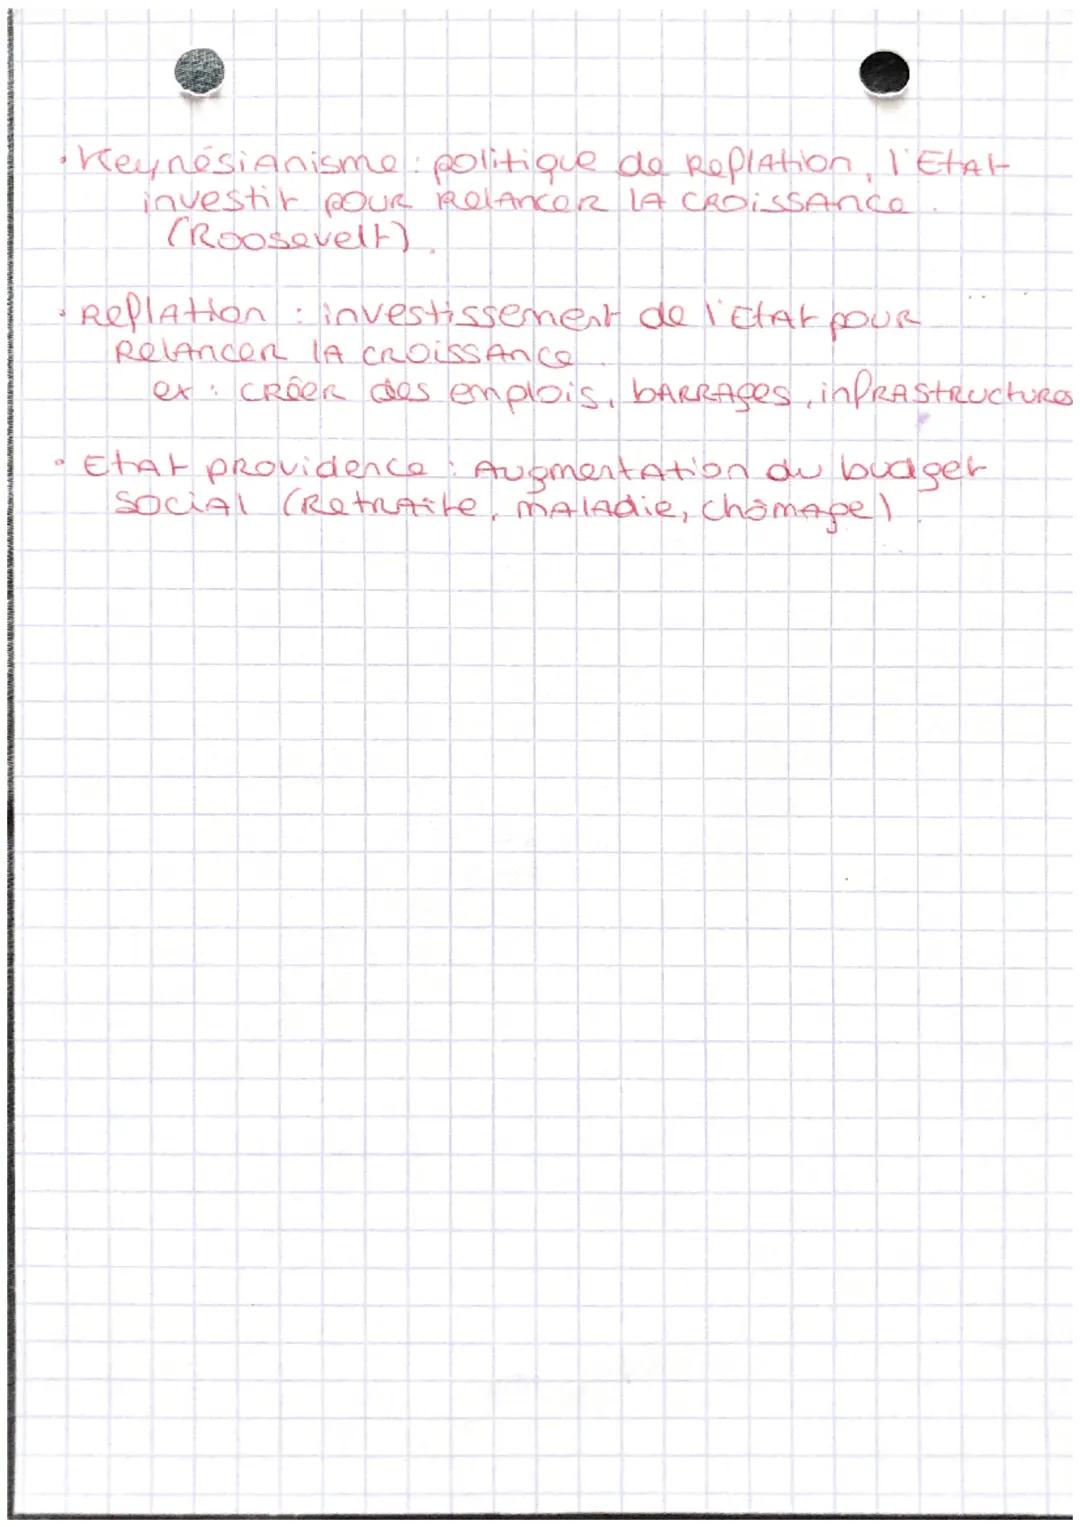 • Keynésianisme : politique de Reflation, l'Etat
investit pour Relancer la croissance.
(Roosevelt).
• Reflation : investissement de l'Etat pour
Relancer la croissance.
ex : créer des emplois, barrages, infrastructures
• Etat providence : Augmentation du budget
social (Retraite, maladie, chômage)